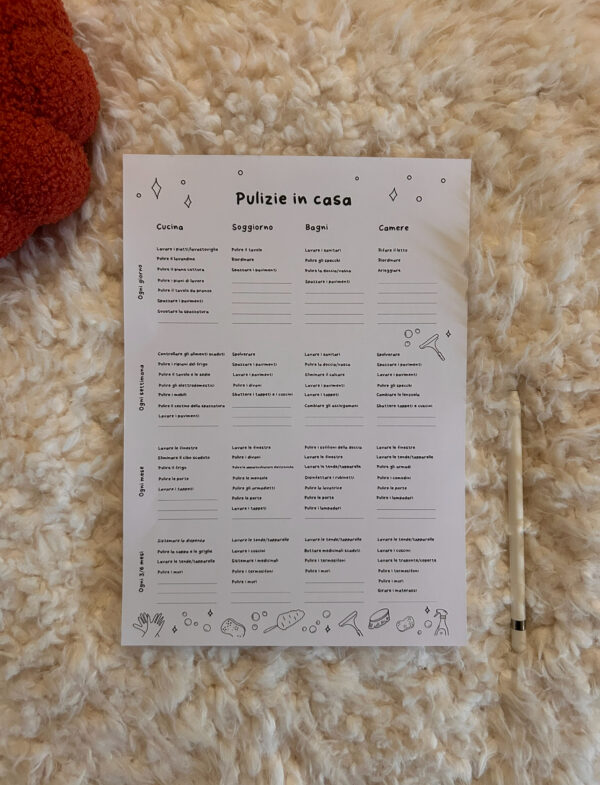 Pulizie in casa
Cucina
Soggiorno
Bagni
Camere
Ogni giorno
Lavare i piatti/lavastoviglie
Pulire il lavandino
Pulire il piano cottura
Pulire i piani di lavoro
Pulire il tavolo da pranzo
Spazzare i pavimenti
Svuotare la spazzatura
Pulire il tavolo
Riordinare
Spazzare i pavimenti
Lavare i sanitari
Pulire gli specchi
Pulire la doccia/vasca
Spazzare i pavimenti
Rifare il letto
Riordinare
Arieggiare
Ogni settimana
Controllare gli alimenti scaduti
Pulire i ripiani del frigo
Pulire il tavolo e le sedie
Pulire gli elettrodomestici
Pulire i mobili
Pulire il cestino della spazzatura
Lavare i pavimenti
Spolverare
Spazzare i pavimenti
Lavare i pavimenti
Pulire i divani
Sbattere i tappeti e i cuscini
Lavare i sanitari
Pulire la doccia/vasca
Eliminare il calcare
Lavare i pavimenti
Lavare i tappeti
Cambiare gli asciugamani
Spolverare
Spazzare i pavimenti
Lavare i pavimenti
Pulire gli specchi
Cambiare le lenzuola
Sbattere tappeti e cuscini
Ogni mese
Lavare le finestre
Eliminare il cibo scaduto
Pulire il frigo
Pulire le porte
Lavare i tappeti
Lavare le finestre
Pulire i divani
Pulire le mensole
Pulire gli armadietti
Pulire le porte
Lavare i tappeti
Pulire i soffioni della doccia
Lavare le finestre
Lavare le tende/tapparelle
Disinfettare i rubinetti
Pulire la lavatrice
Pulire le porte
Pulire i lampadari
Lavare le finestre
Lavare le tende/tapparelle
Pulire gli armadi
Pulire i comodini
Pulire le porte
Pulire i lampadari
Ogni 3/6 mesi
Sistemare la dispensa
Pulire la cappa e le griglie
Lavare le tende/tapparelle
Pulire i muri
Lavare le tende/tapparelle
Lavare i cuscini
Sistemare i medicinali
Pulire i termosifoni
Pulire i muri
Lavare le tende/tapparelle
Buttare medicinali scaduti
Pulire i termosifoni
Pulire i muri
Lavare le tende/tapparelle
Lavare i cuscini
Lavare le trapunte/coperte
Pulire i termosifoni
Pulire i muri
Girare i materassi